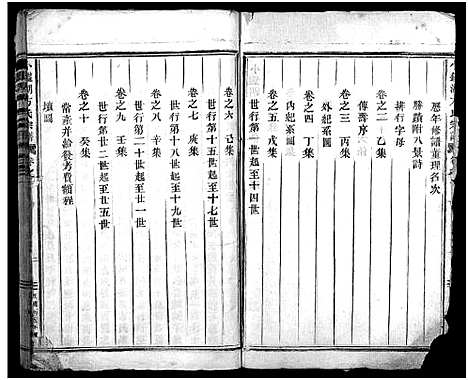 歷年修譜董理名次
勝蹟附八景詩
排行字母
卷之二　乙集
傳 壽序
卷之三　丙集
外紀系圖
卷之四　丁集
內紀系圖
卷之五　戊集
世行第一世起至十四世
卷之六　己集
世行第十五世起至十七世
卷之七　庚集
世行第十八世起至十九世
卷之八　辛集
世行第二十世起至廿一世
卷之九　壬集
世行第廿二世起至廿五世
卷之十　癸集
嘗產并給發考費額程
墳圖